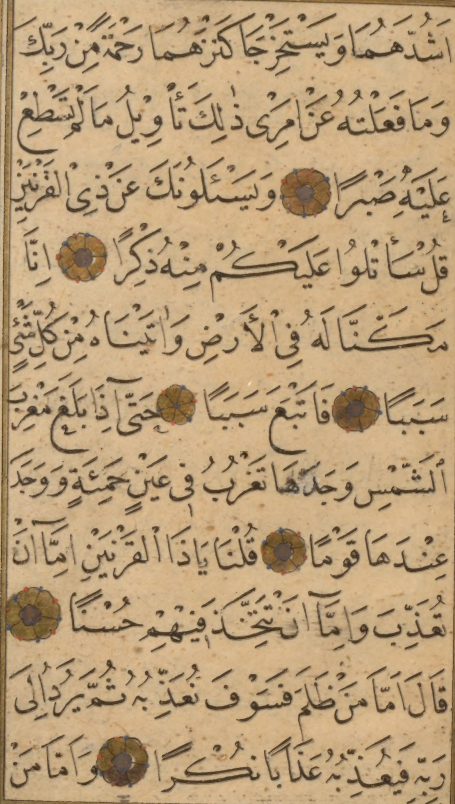 اَشُدَّهُمَا وَيَسْتَخْرِجَا كَنْزَهُمَا رَحْمَةً مِنْ رَبِّكَ
وَمَا فَعَلْتُهُ عَنْ اَمْرِى ذٰلِكَ تَأْوِيلُ مَا لَمْ تَسْطِعْ
عَلَيْهِ صَبْرًا وَيَسْئَلُونَكَ عَنْ ذِى الْقَرْنَيْنِ
قُلْ سَأَتْلُوا عَلَيْكُمْ مِنْهُ ذِكْرًا اِنَّا
مَكَّنَّا لَهُ فِى الْأَرْضِ وَاٰتَيْنَاهُ مِنْ كُلِّ شَئٍْ
سَبَبًا فَاَتْبَعَ سَبَبًا حَتّٰى اِذَا بَلَغَ مَغْرِبَ
الشَّمْسِ وَجَدَهَا تَغْرُبُ فِى عَيْنٍ حَمِئَةٍ وَوَجَدَ
عِنْدَهَا قَوْمًا قُلْنَا يَاذَا الْقَرْنَيْنِ اِمَّآ اَنْ
تُعَذِّبَ وَاِمَّآ اَنْ تَتَّخِذَ فِيْهِمْ حُسْنًا
قَالَ اَمَّا مَنْ ظَلَمَ فَسَوْفَ نُعَذِّبُهُ ثُمَّ يُرَدُّ اِلٰى
رَبِّهِ فَيُعَذِّبُهُ عَذَابًا نُكْرًا وَاَمَّا مَنْ